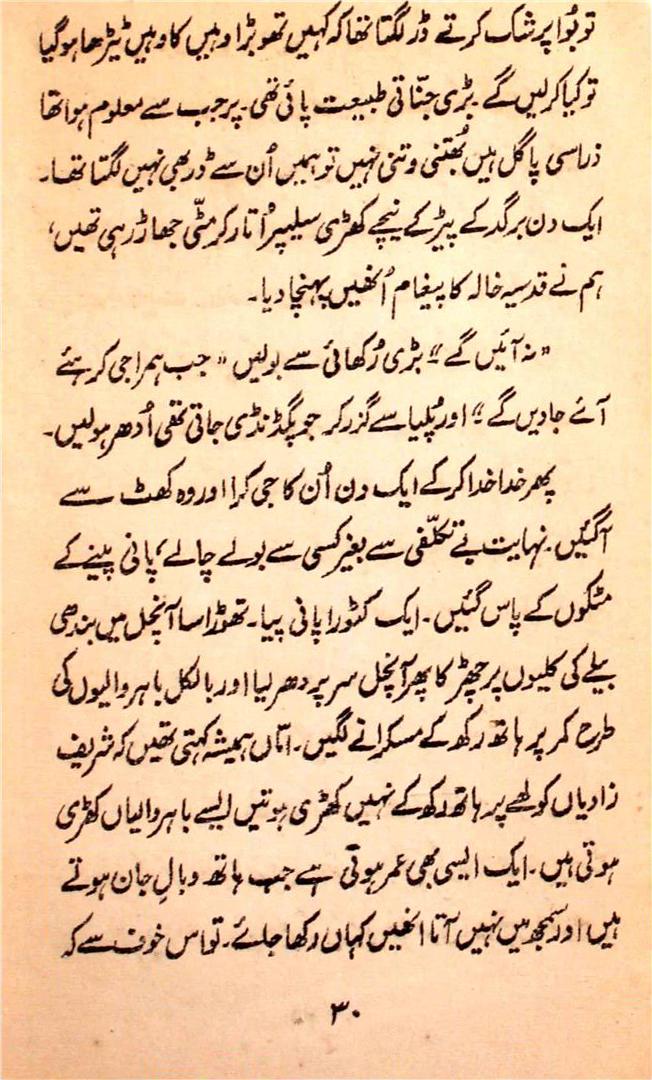 تو بُوا پر شک کرتے ڈر لگتا تھا کہ کہیں تھوبڑا وہیں کا وہیں ٹیڑھا ہوگیا
تو کیا کرلیں گے۔ بڑی جنّاتی طبیعت پائی تھی۔ پر جب سے معلوم ہوا تھا
ذرا سی پاگل ہیں بُھتنی وتنی نہیں تو ہمیں اُن سے ڈر بھی نہیں لگتا تھا۔
ایک دن برگد کے پیڑ کے نیچے کھڑی سلیپر اُتار کر مٹّی جھاڑ رہی تھیں،
ہم نے قدسیہ خالہ کا پیغام اُنھیں پہنچا دیا۔
"نہ آئیں گے" بڑی رُکھائی سے بولیں "جب ہمرا جی کر ہئے
آئے جاویں گے" اور پُلیا سے گزر کر جو پگڈنڈی جاتی تھی اُدھر ہولیں۔
پھر خدا خدا کرکے ایک دن اُن کا جی کرا اور وہ کھٹ سے
آگئیں۔ نہایت بے تکلّفی سے بغیر کسی سے بولے چالے، پانی پینے کے
مٹکوں کے پاس گئیں۔ ایک کٹورا پانی پیا۔ تھوڑا سا آنچل میں بندھی
بیلے کی کلیوں پر چھڑکا پھر آنچل سر پر دھر لیا اور بالکل باہر والیوں کی
طرح کمر پر ہاتھ رکھ کے مسکرانے لگیں۔ امّاں ہمیشہ کہتی تھیں کہ شریف
زادیاں کولھے پر ہاتھ رکھ کے نہیں کھڑی ہوتیں ایسے باہر والیاں کھڑی
ہوتی ہیں۔ ایک ایسی بھی عمر ہوتی ہے جب ہاتھ وبالِ جان ہوتے
ہیں اور سمجھ میں نہیں آتا انھیں کہاں رکھا جائے۔ تو اس خوف سے کہ
۳۰